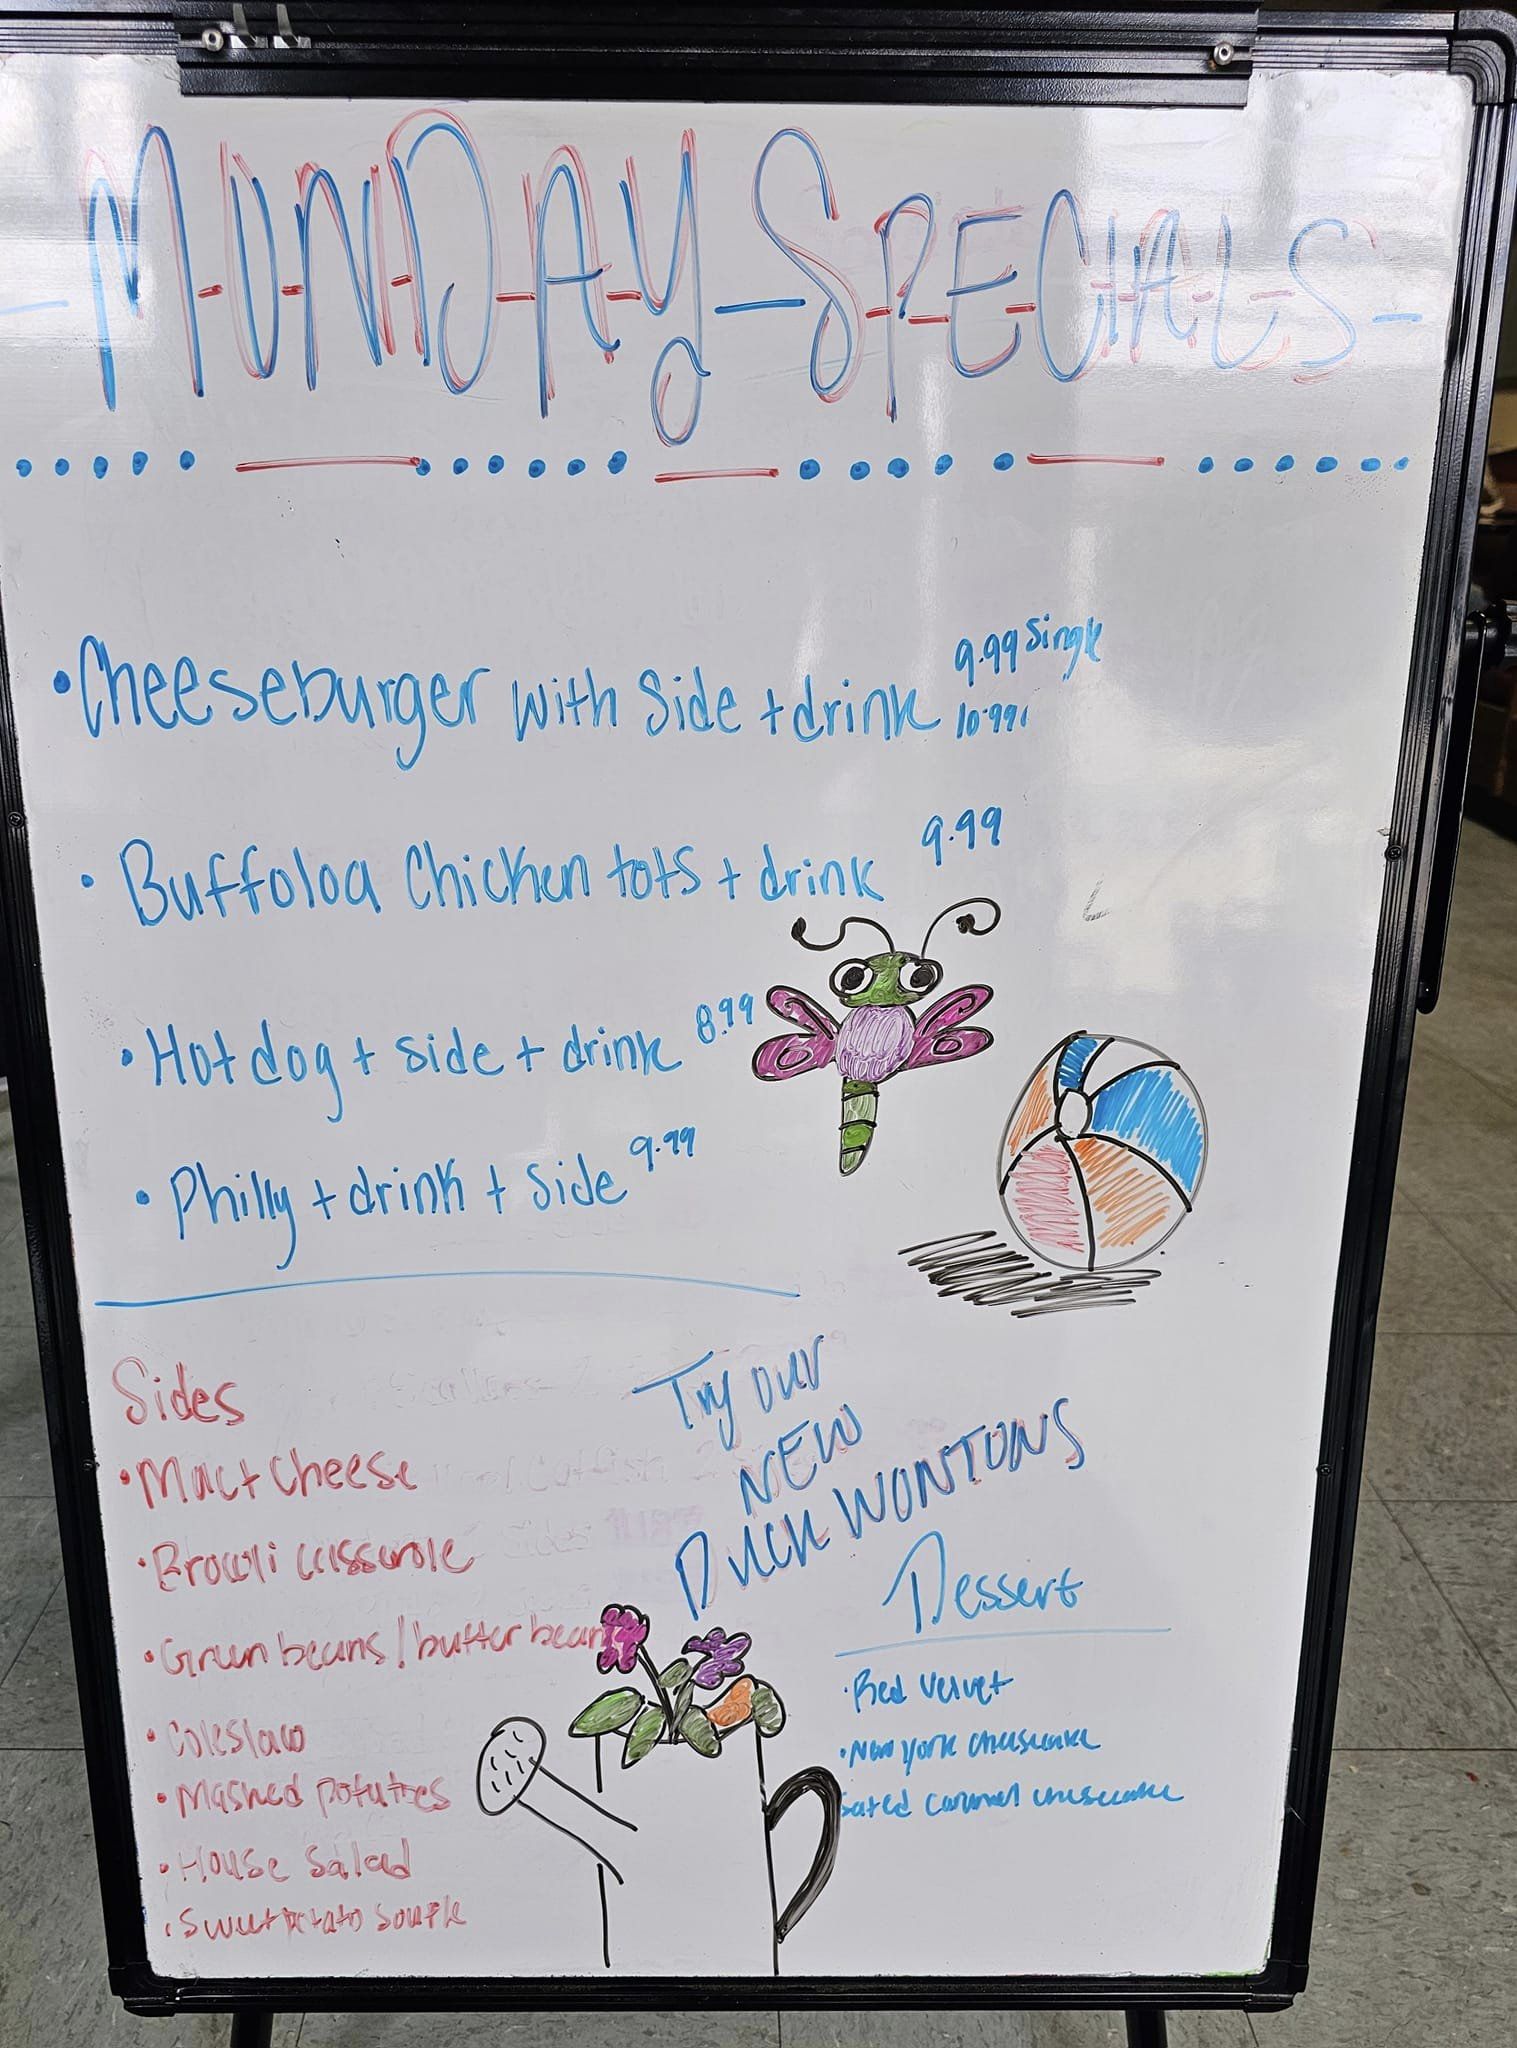 MONDAY SPECIALS
• Cheeseburger with side + drink 9.99 single
10.99
• Buffoloa Chicken tots + drink 9.99
• Hot dog + side + drink 8.99
• Philly + drink + side 9.99
Sides
• Mac + Cheese
• Broccoli casserole
• Green beans / butter bean
• Coleslaw
• Mashed potatoes
• House salad
• Sweet potato soufle
Try our
NEW
DUCK WONTONS
Dessert
• Red velvet
• New york cheesecake
Salted caramel cheesecake